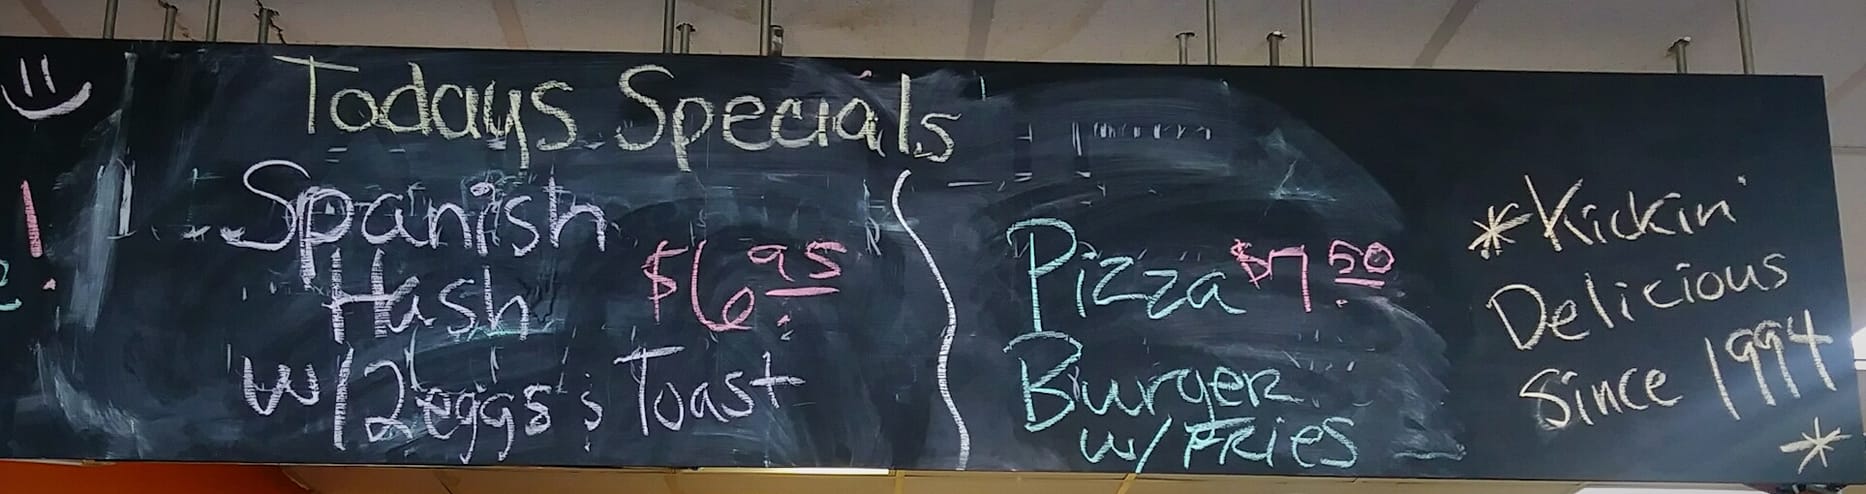 Todays Specials
Spanish
Hash $6.95
w/2 eggs & Toast
Pizza $7.50
Burger
w/ FRiES
*Kickin'
Delicious
Since 1994
*